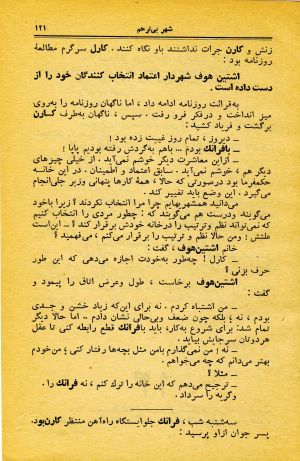 شهر بی‌ترحم ۱۲۱
زنش و کارن جرات نداشتند باو نگاه کنند. کارل سرگرم مطالعهٔ
روزنامه بود :
اشتین هوف شهردار اعتماد انتخاب کنندگان خود را از
دست داده است.
به‌قرائت روزنامه ادامه داد، اما ناگهان روزنامه را به‌روی
میز انداخت و درفکر فرو رفت. سپس، ناگهان به‌طرف کارن
برگشت و فریاد کشید :
ـ دیروز، تمام روز غیبت زده بود!
ـ بافرانک بودم ... باهم به‌گردش رفته بودیم پاپا !
ـ از این معاشرت دیگر خوشم نمی‌آید. از خیلی چیزهای
دیگر هم، خوشم نمی‌آید. سابق اعتماد و اطمینان، در این خانه
حکمفرما بود درصورتی که حالا، همهٔ کارها پنهانی وزیر جلی‌انجام
می‌گیرد. این وضع باید تغییر کند.
میدانید همشهریهایم چرا مرا انتخاب نکردند؟ زیرا باخود
می‌گویند ودرست هم می‌گویند که: چطور مردی را انتخاب کنیم
که نمی‌تواند نظم‌وترتیب را درخانه خودش برقرار کند؟ ـ این‌است
علتش! ومن حالا نظم و ترتیب را برقرار می‌کنم، می‌فهمید؟
خانم اشتین‌هوف گفت :
ـ کارل! چه‌طور به‌خودت اجازه می‌دهی که این طور
حرف بزنی؟
اشتین‌هوف برخاست، طول وعرض اتاق را پیمود و
گفت :
ـ من اشتباه کردم. نه برای این‌که زیاد خشن و جدی
بودم، نه؛ بلکه چون ضعف وبی‌حالی نشان دادم.. اما حالا دیگر
تمام شد: برای شروع به‌کار، باید بافرانک قطع رابطه کنی تا عقل
هردوتان سرجایش بیاید.
ـ نه! من نمی‌گذارم بامن مثل بچه‌ها رفتار کنی؛ من‌خودم
بهتر می‌دانم که چه می‌خواهم.
ـ مثلا؟
ـ ترجیح می‌دهم که این خانه را ترک کنم، نه فرانک را.
وگریه را سرداد.
سه‌شنبه شب، فرانک جلوایستگاه راه‌آهن منتظر کارن‌بود.
پسر جوان ازاو پرسید :